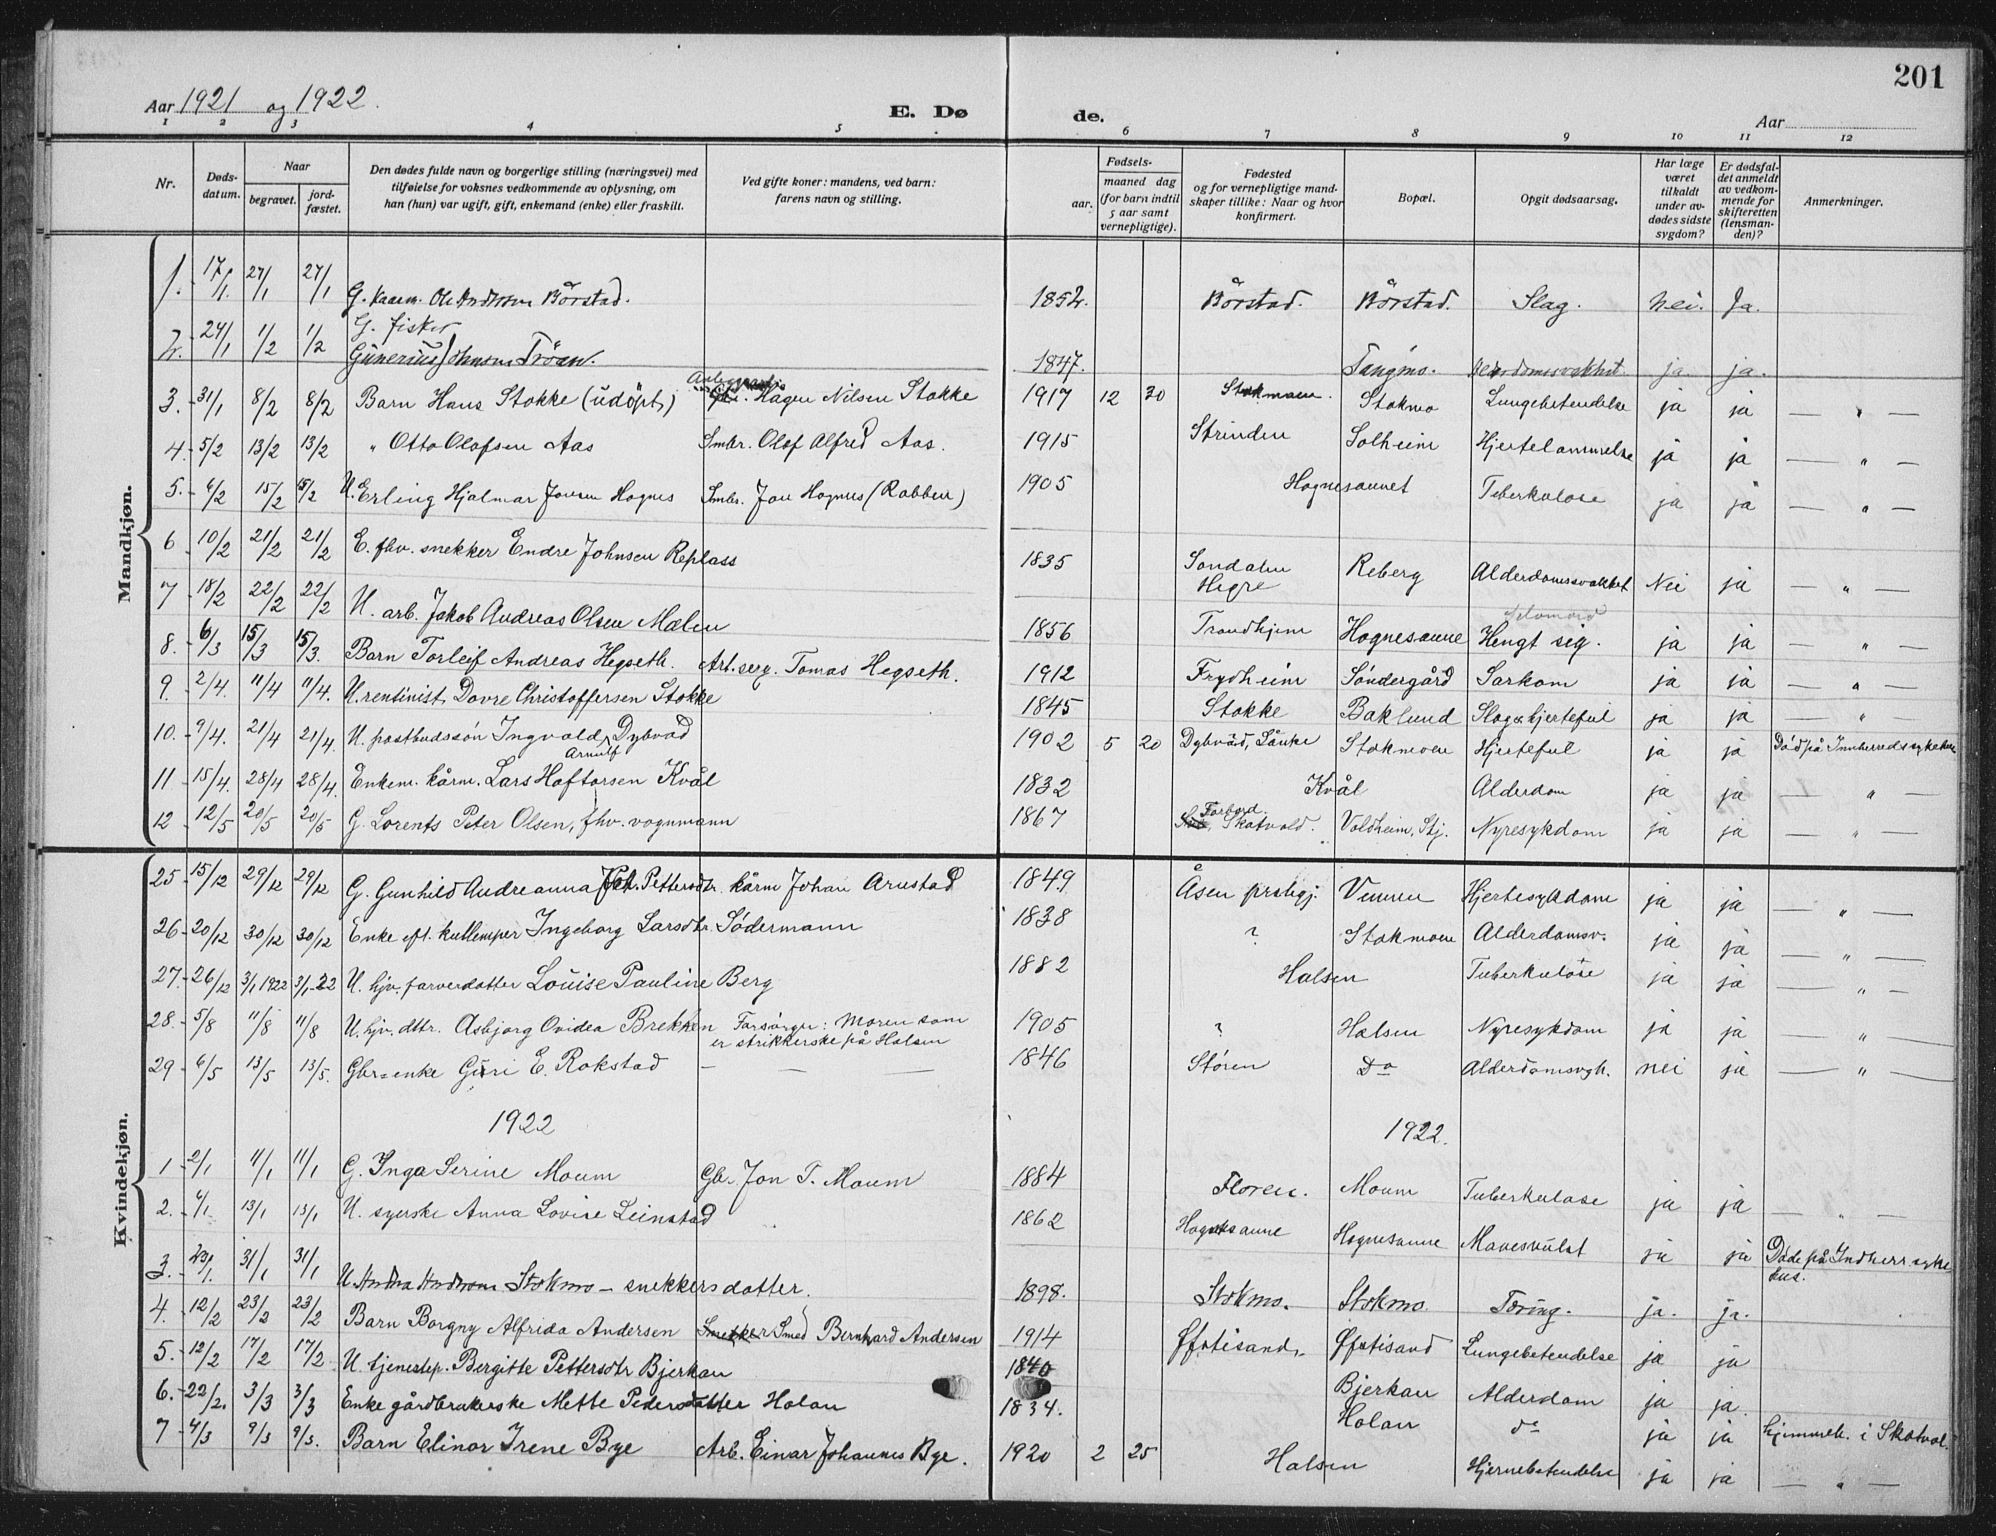 201
Aar 1921 og 1922.
E. Døde.
Aar
1 2 3 4 5 6 7 8 9 10 11 12
Nr. Dødsdatum. Naar begravet. jordfæstet. Den dødes fulde navn og borgerlige stilling (næringsvei) med tilføielse for voksnes vedkommende av oplysning, om han (hun) var ugift, gift, enkemand (enke) eller fraskilt. Ved gifte koner: mandens, ved barn: farens navn og stilling. Fødsels- aar. maaned dag (for barn indtil 5 aar samt vernepligtige). Fødested og for vernepligtige mandskaper tillike: Naar og hvor konfirmert. Bopæl. Opgit dødsaarsag. Har læge været tilkaldt under avdødes sidste sygdom? Er dødsfaldet anmeldt av vedkommende for skifteretten (lensmanden)? Anmerkninger.
Mandkjøn.
1. 17/1. 27/1 27/1 G. kaarm. Ole Andersen Børstad. 1852. Børstad. Børstad. Slag. Nei. Ja.
2. 24/1 1/2 1/2 G. fisker Gunerius Johnsen Trøan. 1847. Tangmo. ja ja.
3. 31/1 8/2 8/2 Barn Hans Stokke (udøpt) Hagen Nilsen Stokke 1917 12 30 Stokmoen. Stokmo Lungebetendelse ja ja — „ —
4. 5/2 13/2 13/2 „ Otto Olafsen Aas Smbr. Olaf Alfred Aas. 1915 Strinden Solheim Hjertelammelse ja ja — „ —
5. 6/2 15/2 15/2 U. Erling Hjalmar Jonsen Hognes Smbr. Jon Hognes (Rabben) 1905 Hognesaunet Tuberkulose ja ja — „ —
6 10/2 21/2 21/2 E. fhv. snekker Endre Johnsen Replass 1835 Sondalen Hegre Reberg Alderdomssvakhet Nei ja — „ —
7 18/2 22/2 22/2 U. arb. Jakob Andreas Olsen Mælen 1856 Trondhjem Hognesaune Selvmord Hengt sig. ja ja — „ —
8. 6/3 15/3 15/3. Barn Torleif Andreas Hegseth. Art. serg. Tomas Hegseth. 1912 Frydheim Søndergård Sarkom ja ja — „ —
9. 2/4. 11/4 11/4. U. rentinist Dovre Christoffersen Stokke 1845 Stokke Baklund Slag & hjerteful ja ja — „ —
10. 9/4. 21/4 21/4. U. postbudssøn Ingvald Arnulf Dybvad 1902 5 20 Dybvad, Lånke Stokmoen Hjerteful ja ja Död på Innherreds sykehus
11 15/4. 28/4 28/4. Enkem. kårm. Lars Haftorsen Kvål 1832 Kvål Alderdom ja ja — „ —
12 12/5 20/5 20/5 G. Lorents Peter Olsen, fhv. vognmann 1867 Forbord. Skatvold. Voldheim, Stj. Nyresykdom ja ja — „ —
Kvindekjøn.
25 15/12 29/12 29/12 G. Gunhild Andreanna Pettersdtr. kårm Johan Arnstad 1849 Åsen prstgj. Vinnen Hjertesykdom ja ja — „ —
26 20/12 30/12 30/12 Enke eft. kullemper Ingeborg Larsdtr. Södermann 1838 ? Stokmoen Alderdomsv. ja ja — „ —
27. 26/12 3/1 1922 3/1-22 U. hjv. farverdatter Louise Pauline Berg 1882 Halsen Tuberkulose ja ja — „ —
28. 5/8 11/8 11/8 U. hjv. dttr. Asbjørg Ovidea Brekken Forsørger: Moren som er strikkerske på Halsen 1905 ? Halsen Nyresykdom ja ja — „ —
29 6/5 13/5 13/5. Gbr-enke Guri E. Rokstad — — — 1846 Støren Do Alderdomsvgh. nei ja — „ —
1922 1922.
1 2/1 11/1 11/1 G. Inga Serine Moum Gbr. Jon T. Moum 1884 Floren. Moum Tuberkulose ja ja
2. 4/1 13/1 13/1 U. syerske Anna Lovise Leinstad 1862 Hognesaune Hognesaune Mavesvulst ja ja — „ —
3. 23/1. 31/1 31/1 U. Andrea Andersen Stokmo — snekkersdatter. 1898. Stokmo. Stokmo. Tæring. ja. ja. Døde på Indherr syke hus.
4. 12/2 23/2 23/2 Barn Borgny Alfrida Andersen Smed Bernhard Andersen 1914 Øfstisand. Øfstisand Lungebetendelse ja ja
5. 12/2 17/2 17/2 U. tjenestep. Bergitte Pettersdtr Bjerkan 1840 Bjerkan Alderdom ja ja.
6. 22/2. 3/3 3/3 Enke gårdbrukerske Mette Pedersdatter Holan 1834. Holan do ja ja hjemmeh. i Skatval.
7 4/3 9/3 9/3. Barn Elinor Irene Bye Arb. Einar Johannes Bye. 1920 2 25 Halsen Hjernebetendelse ja ja — „ —